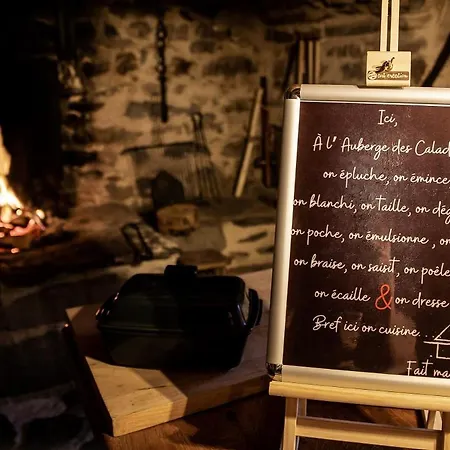 création
Ici,
À l'Auberge des Calad
on épluche, on émince
on blanchi, on taille, on dég
on poche, on émulsionne, on
on braise, on saisit, on poêle
on écaille & on dresse
Bref ici on cuisine...
Fait ma